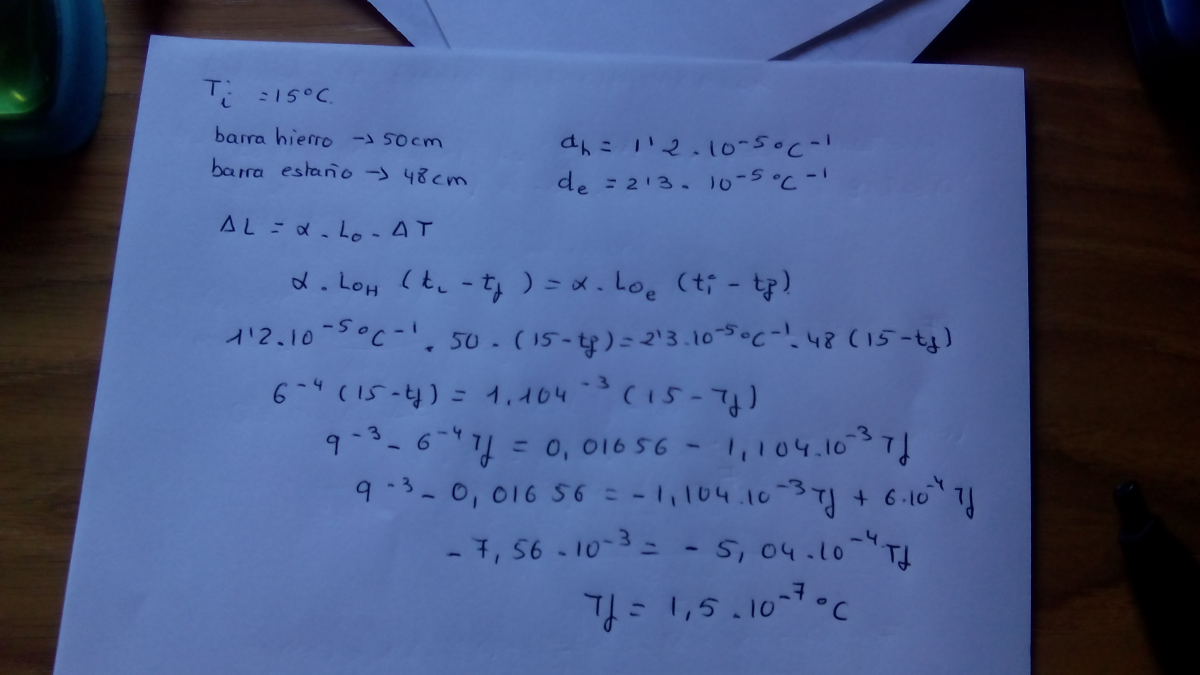 Ti = 15°C.
barra hierro → 50cm αh = 1'2 . 10⁻⁵ °C⁻¹
barra estaño → 48cm αe = 2'3 . 10⁻⁵ °C⁻¹
ΔL = α . L₀ . ΔT
α . L₀H (ti - tf) = α . L₀e (ti - tf)
1'2 . 10⁻⁵ °C⁻¹ . 50 . (15 - tf) = 2'3 . 10⁻⁵ °C⁻¹ . 48 (15 - tf)
6⁻⁴ (15 - tf) = 1,104⁻³ (15 - Tf)
9⁻³ - 6⁻⁴ Tf = 0,01656 - 1,104.10⁻³ Tf
9⁻³ - 0,01656 = - 1,104.10⁻³ Tf + 6.10⁻⁴ Tf
- 7,56 . 10⁻³ = - 5,04.10⁻⁴ Tf
Tf = 1,5 . 10⁻⁷ °C